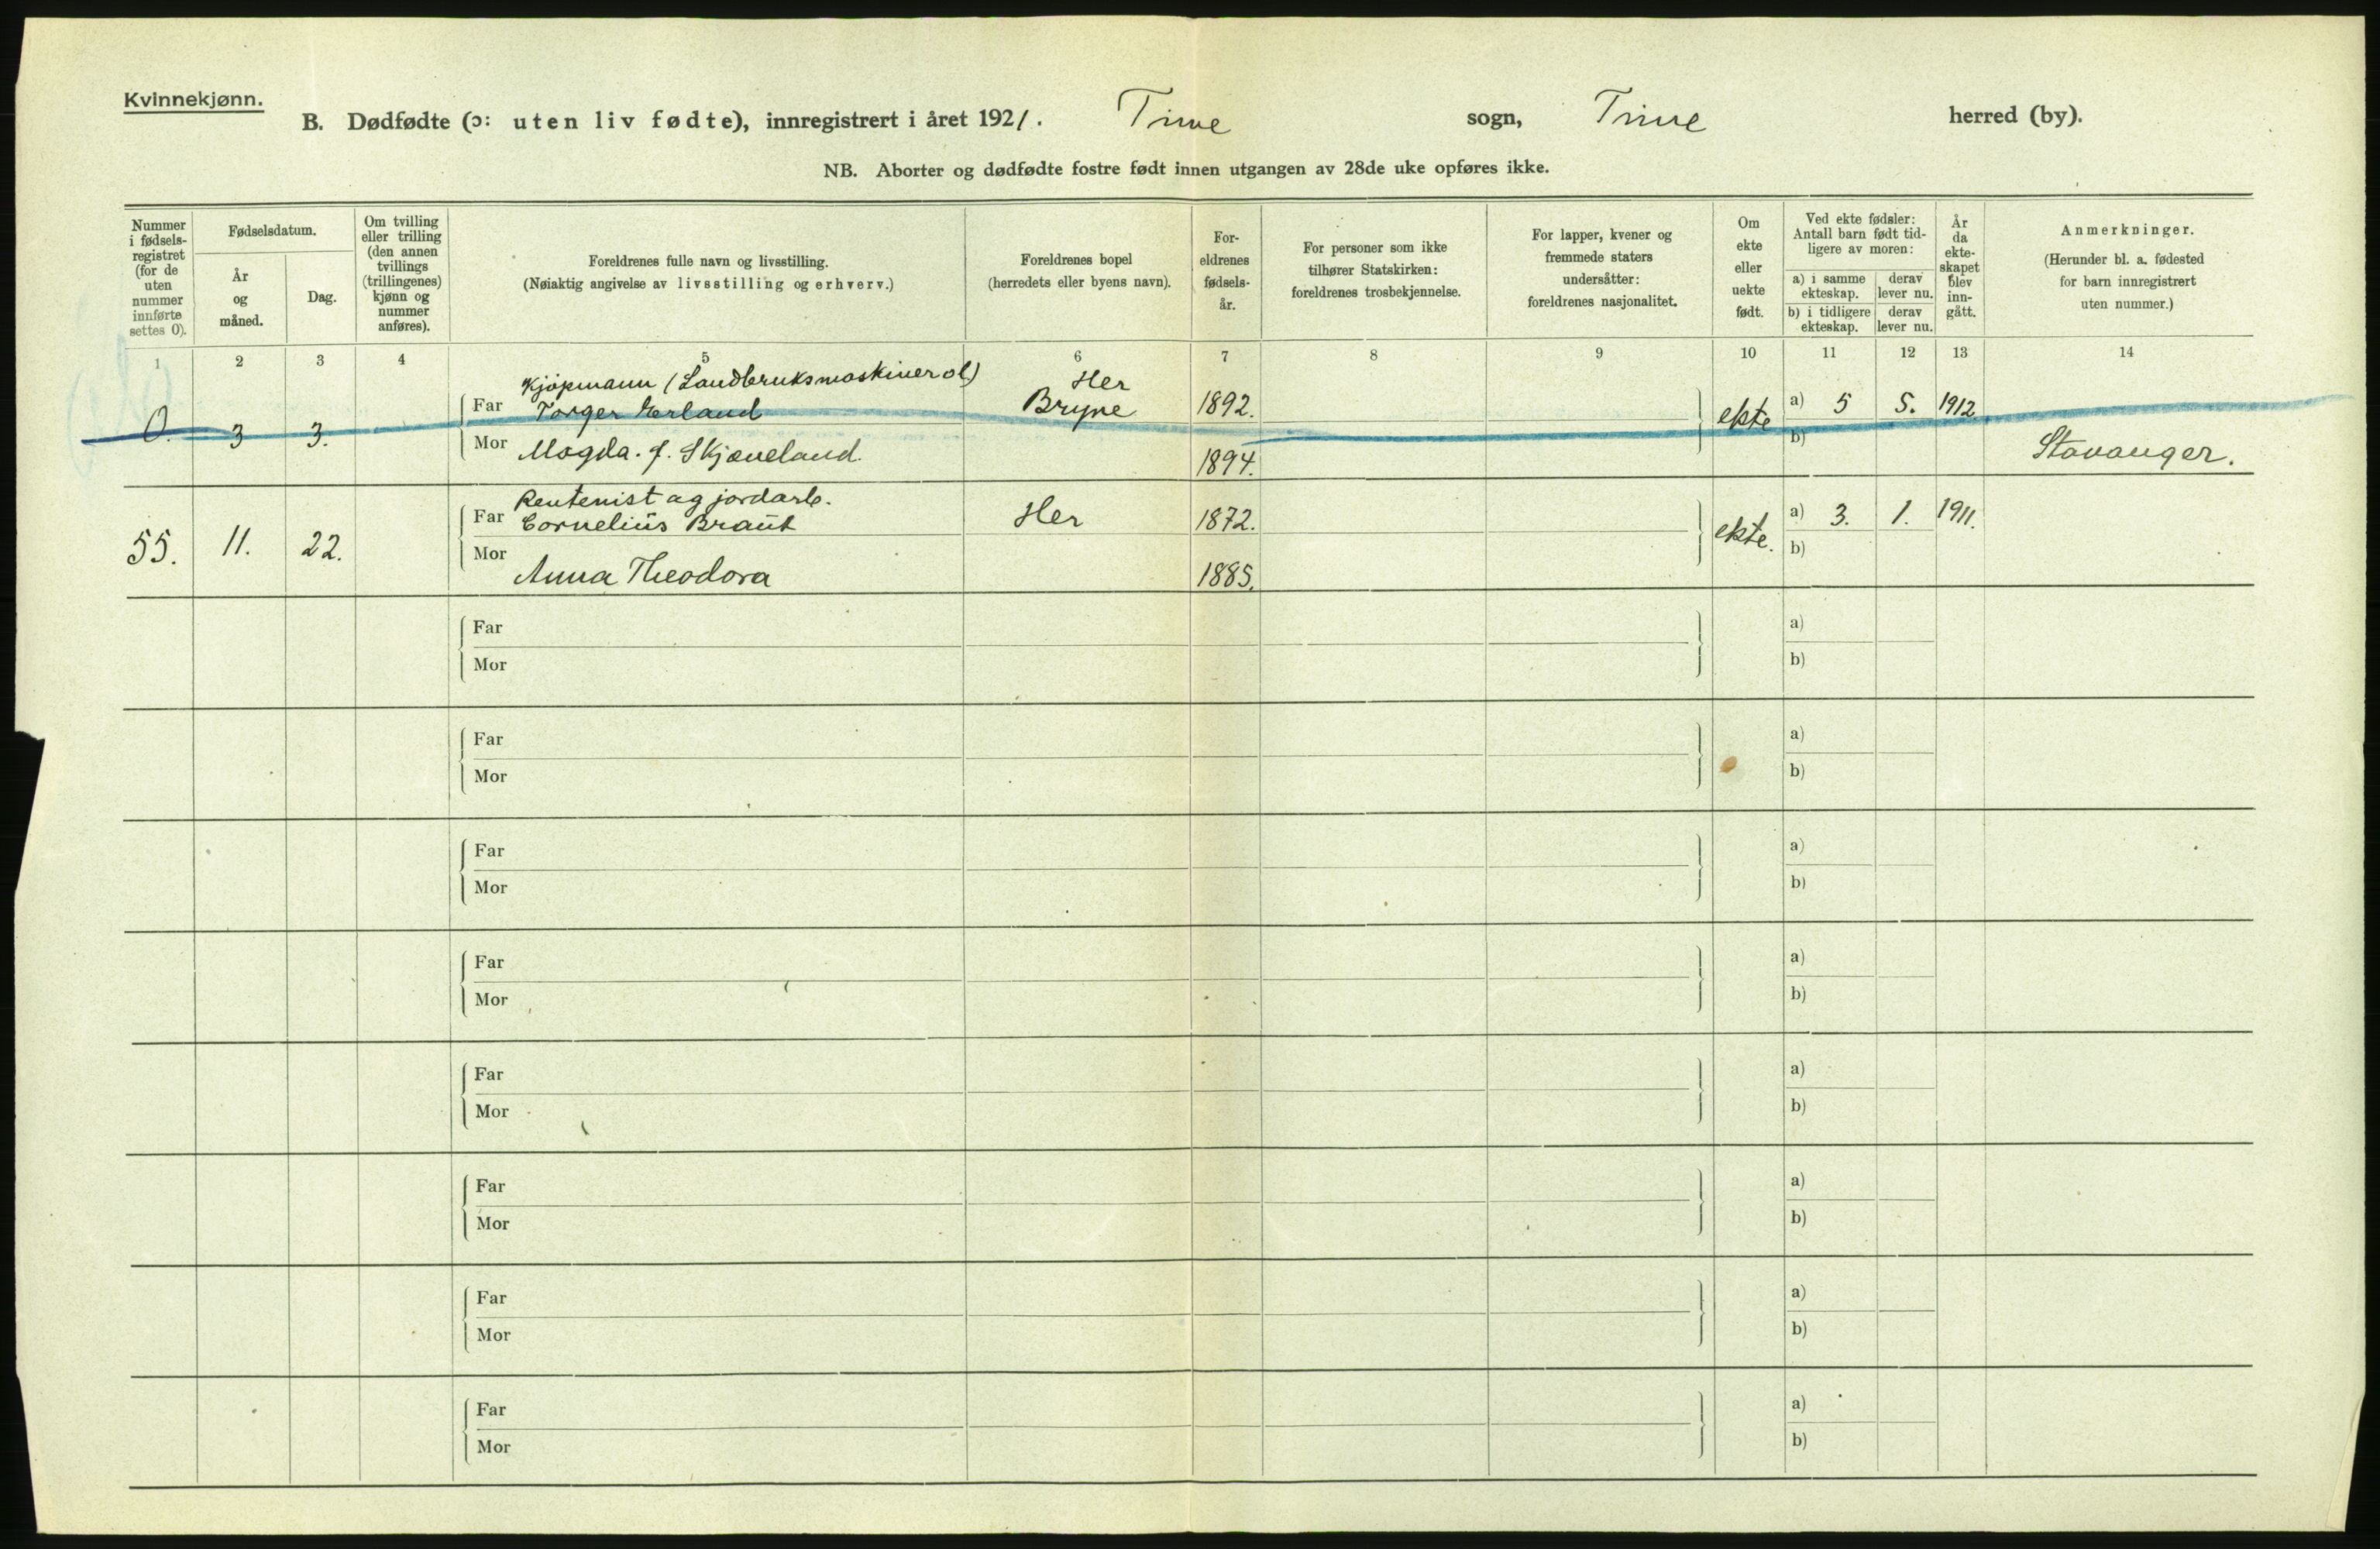 Kvinnekjønn.
B. Dødfødte (ɔ: uten liv fødte), innregistrert i året 1921. Time sogn, Time herred (by).
NB. Aborter og dødfødte fostre født innen utgangen av 28de uke opføres ikke.
Nummer i fødsels-registret (for de uten nummer innførte settes 0).
Fødselsdatum.
År og måned.
Dag.
Om tvilling eller trilling (den annen tvillings (trillingenes) kjønn og nummer anføres).
Foreldrenes fulle navn og livsstilling.
(Nøiaktig angivelse av livsstilling og erhverv.)
Foreldrenes bopel
(herredets eller byens navn).
For-eldrenes fødsels-år.
For personer som ikke tilhører Statskirken: foreldrenes trosbekjennelse.
For lapper, kvener og fremmede staters undersåtter: foreldrenes nasjonalitet.
Om ekte eller uekte født.
Ved ekte fødsler: Antall barn født tid-ligere av moren:
a) i samme ekteskap.
derav lever nu.
b) i tidligere ekteskap.
derav lever nu.
År da ekte-skapet blev inn-gått.
Anmerkninger.
(Herunder bl. a. fødested for barn innregistrert uten nummer.)
1 2 3 4 5 6 7 8 9 10 11 12 13 14
Kjøpmann (Landbruksmaskiner ol) Her
0. 3 3. Far Torger Herland Bryne 1892. ekte a) 5 5. 1912
Mor Magda. f. Skjæveland. 1894. b) Stavanger.
Rentenist og jordarb.
55. 11. 22. Far Cornelius Braut Her 1872. ekte. a) 3. 1. 1911.
Mor Anna Theodora 1885. b)
Far a)
Mor b)
Far a)
Mor b)
Far a)
Mor b)
Far a)
Mor b)
Far a)
Mor b)
Far a)
Mor b)
Far a)
Mor b)
Far a)
Mor b)